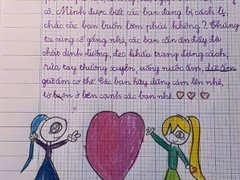 cô. Mình được biết các bạn đang bị cách ly,
chắc các bạn buồn lắm phải không? Chúng
ta cùng cố gắng nhé, các bạn cần ăn đầy đủ
chất dinh dưỡng, đeo khẩu trang đúng cách,
rửa tay thường xuyên, uống nước ấm,
giữ ấm cơ thể. Các bạn hãy dũng cảm lên nhé,
tớ luôn ở bên cạnh các bạn nhé. ♡ ♡ ♡